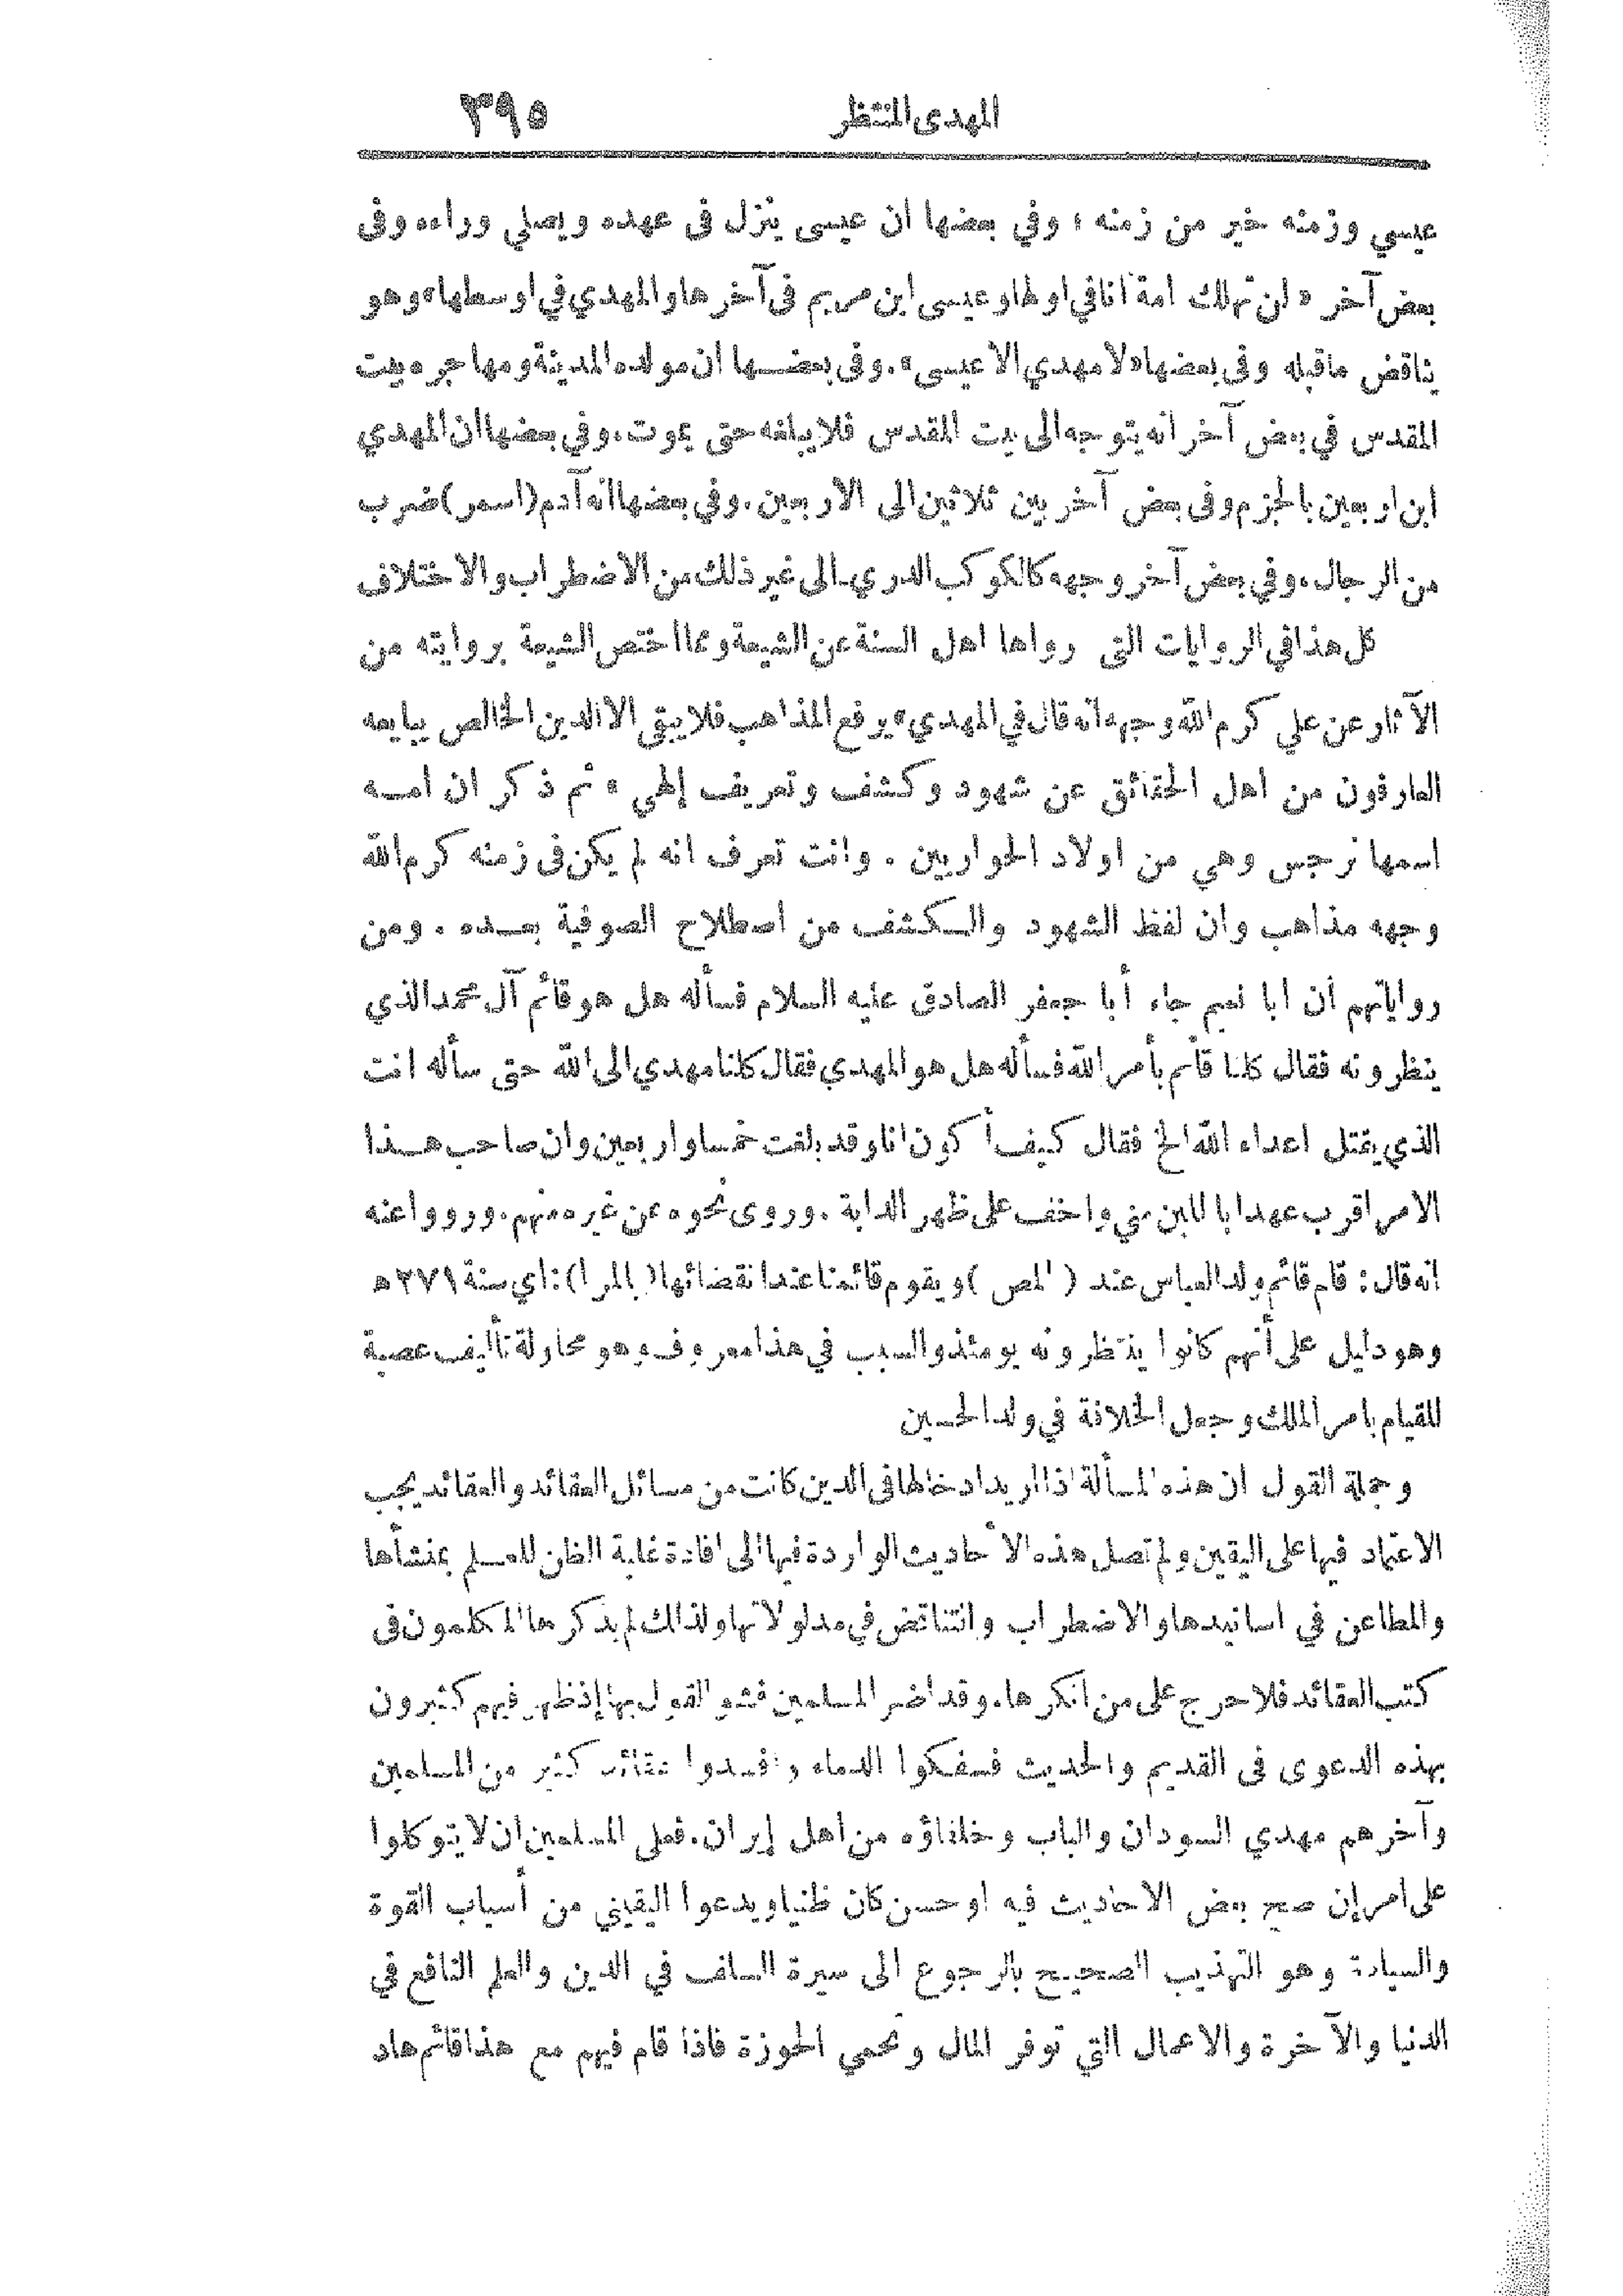 المهدى المنتظر ٣٩٥
عيسي وزمنه خير من زمنه ؛ وفي بعضها ان عيسى ينزل فى عهده ويصلي وراءه وفى
بعض آخر « لن تهلك امة أنا في اولها وعيسى ابن مريم فى آخرها والمهدي في اوسطها» وهو
يناقض ماقبله وفى بعضها «لا مهدي الا عيسى». وفى بعضها ان مولده المدينة ومهاجره بيت
المقدس في بعض آخر أنه يتوجه الى بيت المقدس فلا يبلغه حتى يموت. وفي بعضها ان المهدي
ابن اربعين بالجزم وفى بعض آخر بين ثلاثين الى الاربعين. وفي بعضها انه آدم (اسمر) ضرب
من الرجال، وفي بعض آخر وجهه كالكوكب الدري ـ الى غير ذلك من الاضطراب والاختلاف
كل هذا في الروايات التى رواها اهل السنة عن الشيعة ومما اختص الشيعة بروايته من
الآثار عن علي كرم الله وجهه انه قال في المهدي «يرفع المذاهب فلا يبقى الا الدين الخالص يبايعه
العارفون من اهل الحقائق عن شهود وكشف وتعريف إلهي » ثم ذكر ان امه
اسمها نرجس وهي من اولاد الحواريين . وانت تعرف انه لم يكن فى زمنه كرم الله
وجهه مذاهب وان لفظ الشهود والكشف من اصطلاح الصوفية بعده . ومن
رواياتهم أن ابا نعيم جاء أبا جعفر الصادق عليه السلام فسأله هل هو قائم آل محمد الذي
ينظرونه فقال كلنا قائم بأمر الله فسأله هل هو المهدي فقال كلنا مهدي الى الله حتى سأله انت
الذي يقتل اعداء الله الخ فقال كيف أكون انا وقد بلغت خمسا واربعين وان صاحب هذا
الامر اقرب عهدا باللبن مني واخف على ظهر الدابة . وروى نحوه عن غيره منهم. ورووا عنه
انه قال : قام قائم ولد العباس عند ( المص ) ويقوم قائمنا عند انقضائها ( بالمرا ) : اي سنة ٢٧١ ه
وهو دليل على أنهم كانوا ينتظرونه يومئذ والسبب في هذا معروف وهو محاولة تأليف عصبة
للقيام بامر الملك وجعل الخلافة في ولد الحسين
وجملة القول ان هذه المسألة اذا اريد ادخالها فى الدين كانت من مسائل العقائد والعقائد يجب
الاعتماد فيها على اليقين ولم تصل هذه الأحاديث الواردة فيها الى افادة غلبة الظن للعلم بمنشأها
والمطاعن في اسانيدها والاضطراب والتناقض في مدلولاتها ولذلك لم يذكرها المتكلمون فى
كتب العقائد فلا حرج على من انكرها. وقد اضر المسلمين فشو القول بها إذ ظهر فيهم كثيرون
بهذه الدعوى فى القديم والحديث فسفكوا الدماء وافسدوا عقائد كثير من المسلمين
وآخرهم مهدي السودان والباب وخلفاؤه من اهل إيران. فعلى المسلمين ان لا يتوكلوا
على امر إن صح بعض الاحاديث فيه او حسن كان ظنيا ويدعوا اليقيني من أسباب القوة
والسيادة وهو التهذيب الصحيح بالرجوع الى سيرة السلف في الدين والعلم النافع في
الدنيا والآخرة والاعمال التي توفر المال وتحمي الحوزة فاذا قام فيهم مع هذا قائم هاد